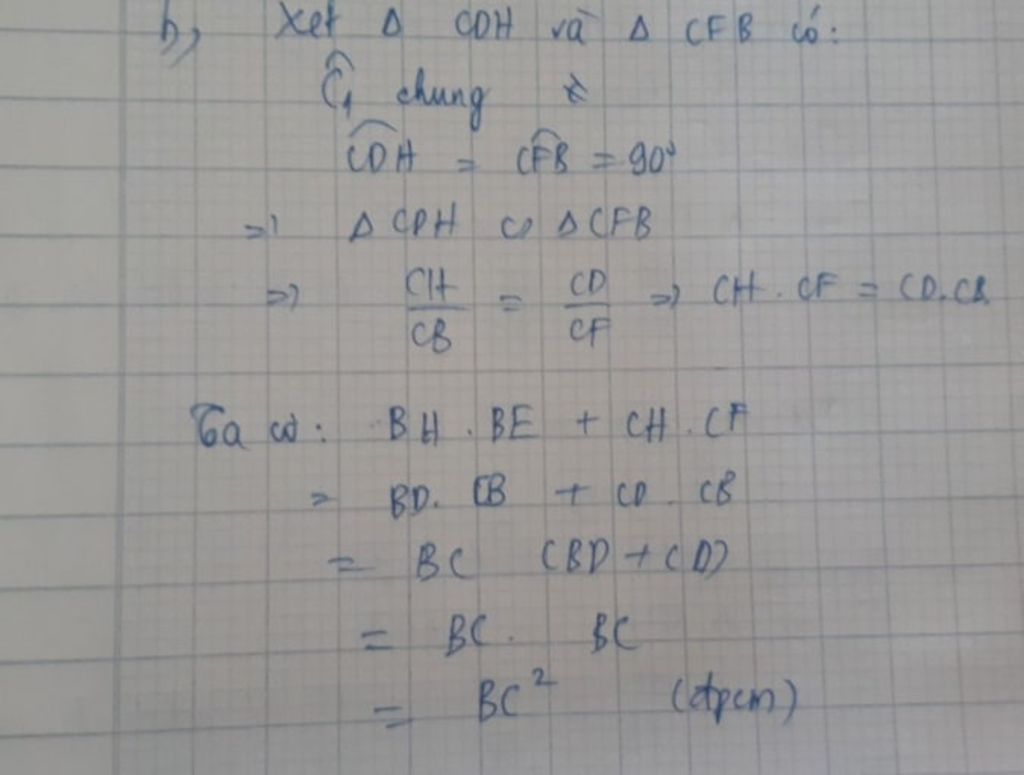 b, Xét Δ CDH và Δ CFB có:
Ĉ₁ chung
CDH = CFB = 90°
=> Δ CDH ∽ Δ CFB
=> CH/CB = CD/CF => CH . CF = CD.CB
Ta có: BH . BE + CH . CF
= BD. CB + CD . CB
= BC (BD + CD)
= BC . BC
= BC² (đpcm)